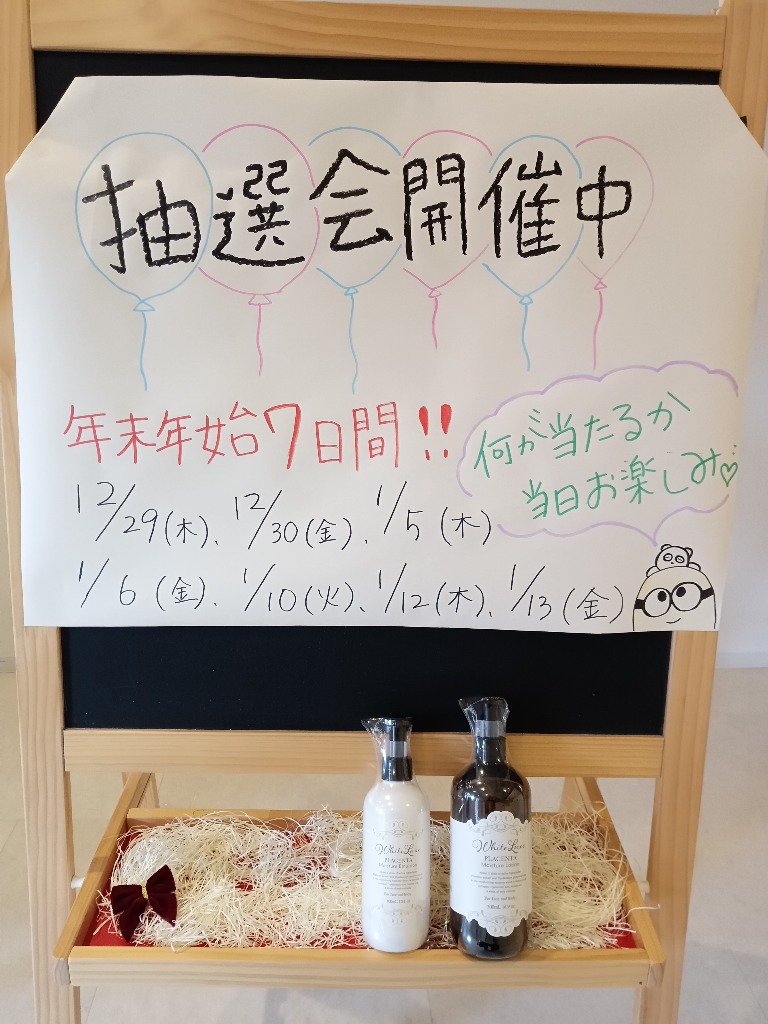 抽選会開催中
年末年始7日間!!
何が当たるか
当日お楽しみ♡
12/29(木)、12/30(金)、1/5(木)
1/6(金)、1/10(火)、1/12(木)、1/13(金)
White Luxe
PLACENTA
Moisture Emulsion
White Luxe
PLACENTA
Moisture Lotion